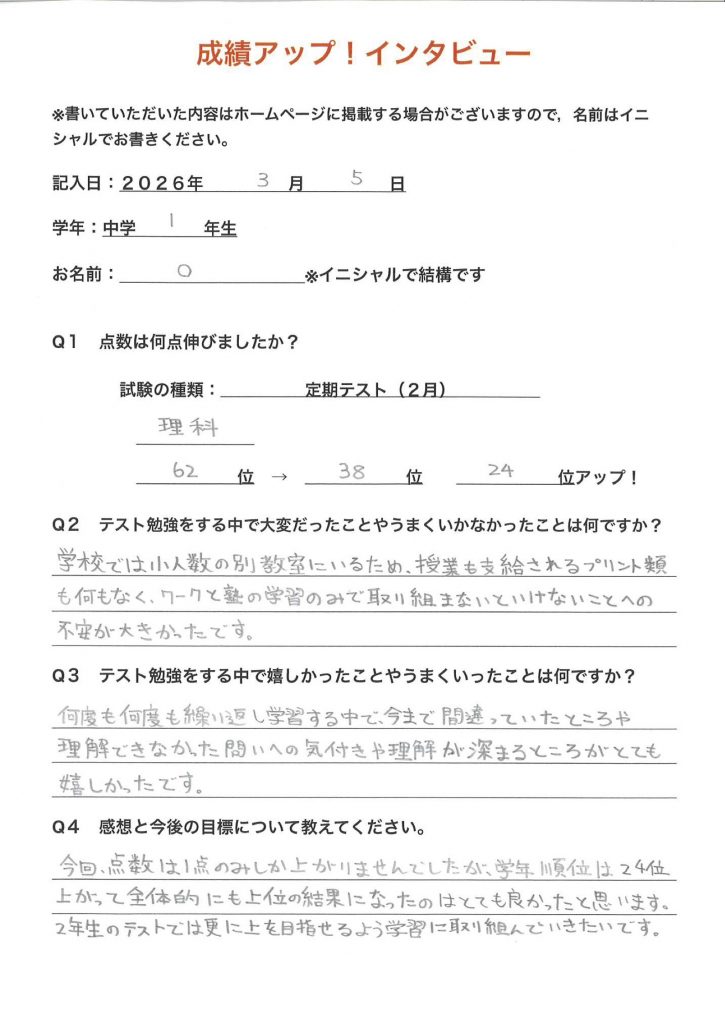 成績アップ！インタビュー
※書いていただいた内容はホームページに掲載する場合がございますので，名前はイニ
シャルでお書きください。
記入日：２０２６年 3 月 5 日
学年：中学 1 年生
お名前： O ※イニシャルで結構です
Ｑ１ 点数は何点伸びましたか？
試験の種類： 定期テスト（２月）
理科
62 位 → 38 位 24 位アップ！
Ｑ２ テスト勉強をする中で大変だったことやうまくいかなかったことは何ですか？
学校では小人数の別教室にいるため、授業も支給されるプリント類
も何もなく、ワークと塾の学習のみで取り組まないといけないことへの
不安が大きかったです。
Ｑ３ テスト勉強をする中で嬉しかったことやうまくいったことは何ですか？
何度も何度も繰り返し学習する中で、今まで間違っていたところや
理解できなかった問いへの気付きや理解が深まるところがとても
嬉しかったです。
Ｑ４ 感想と今後の目標について教えてください。
今回、点数は1点のみしか上がりませんでしたが、学年順位は24位
上がって全体的にも上位の結果になったのはとても良かったと思います。
2年生のテストでは更に上を目指せるよう学習に取り組んでいきたいです。